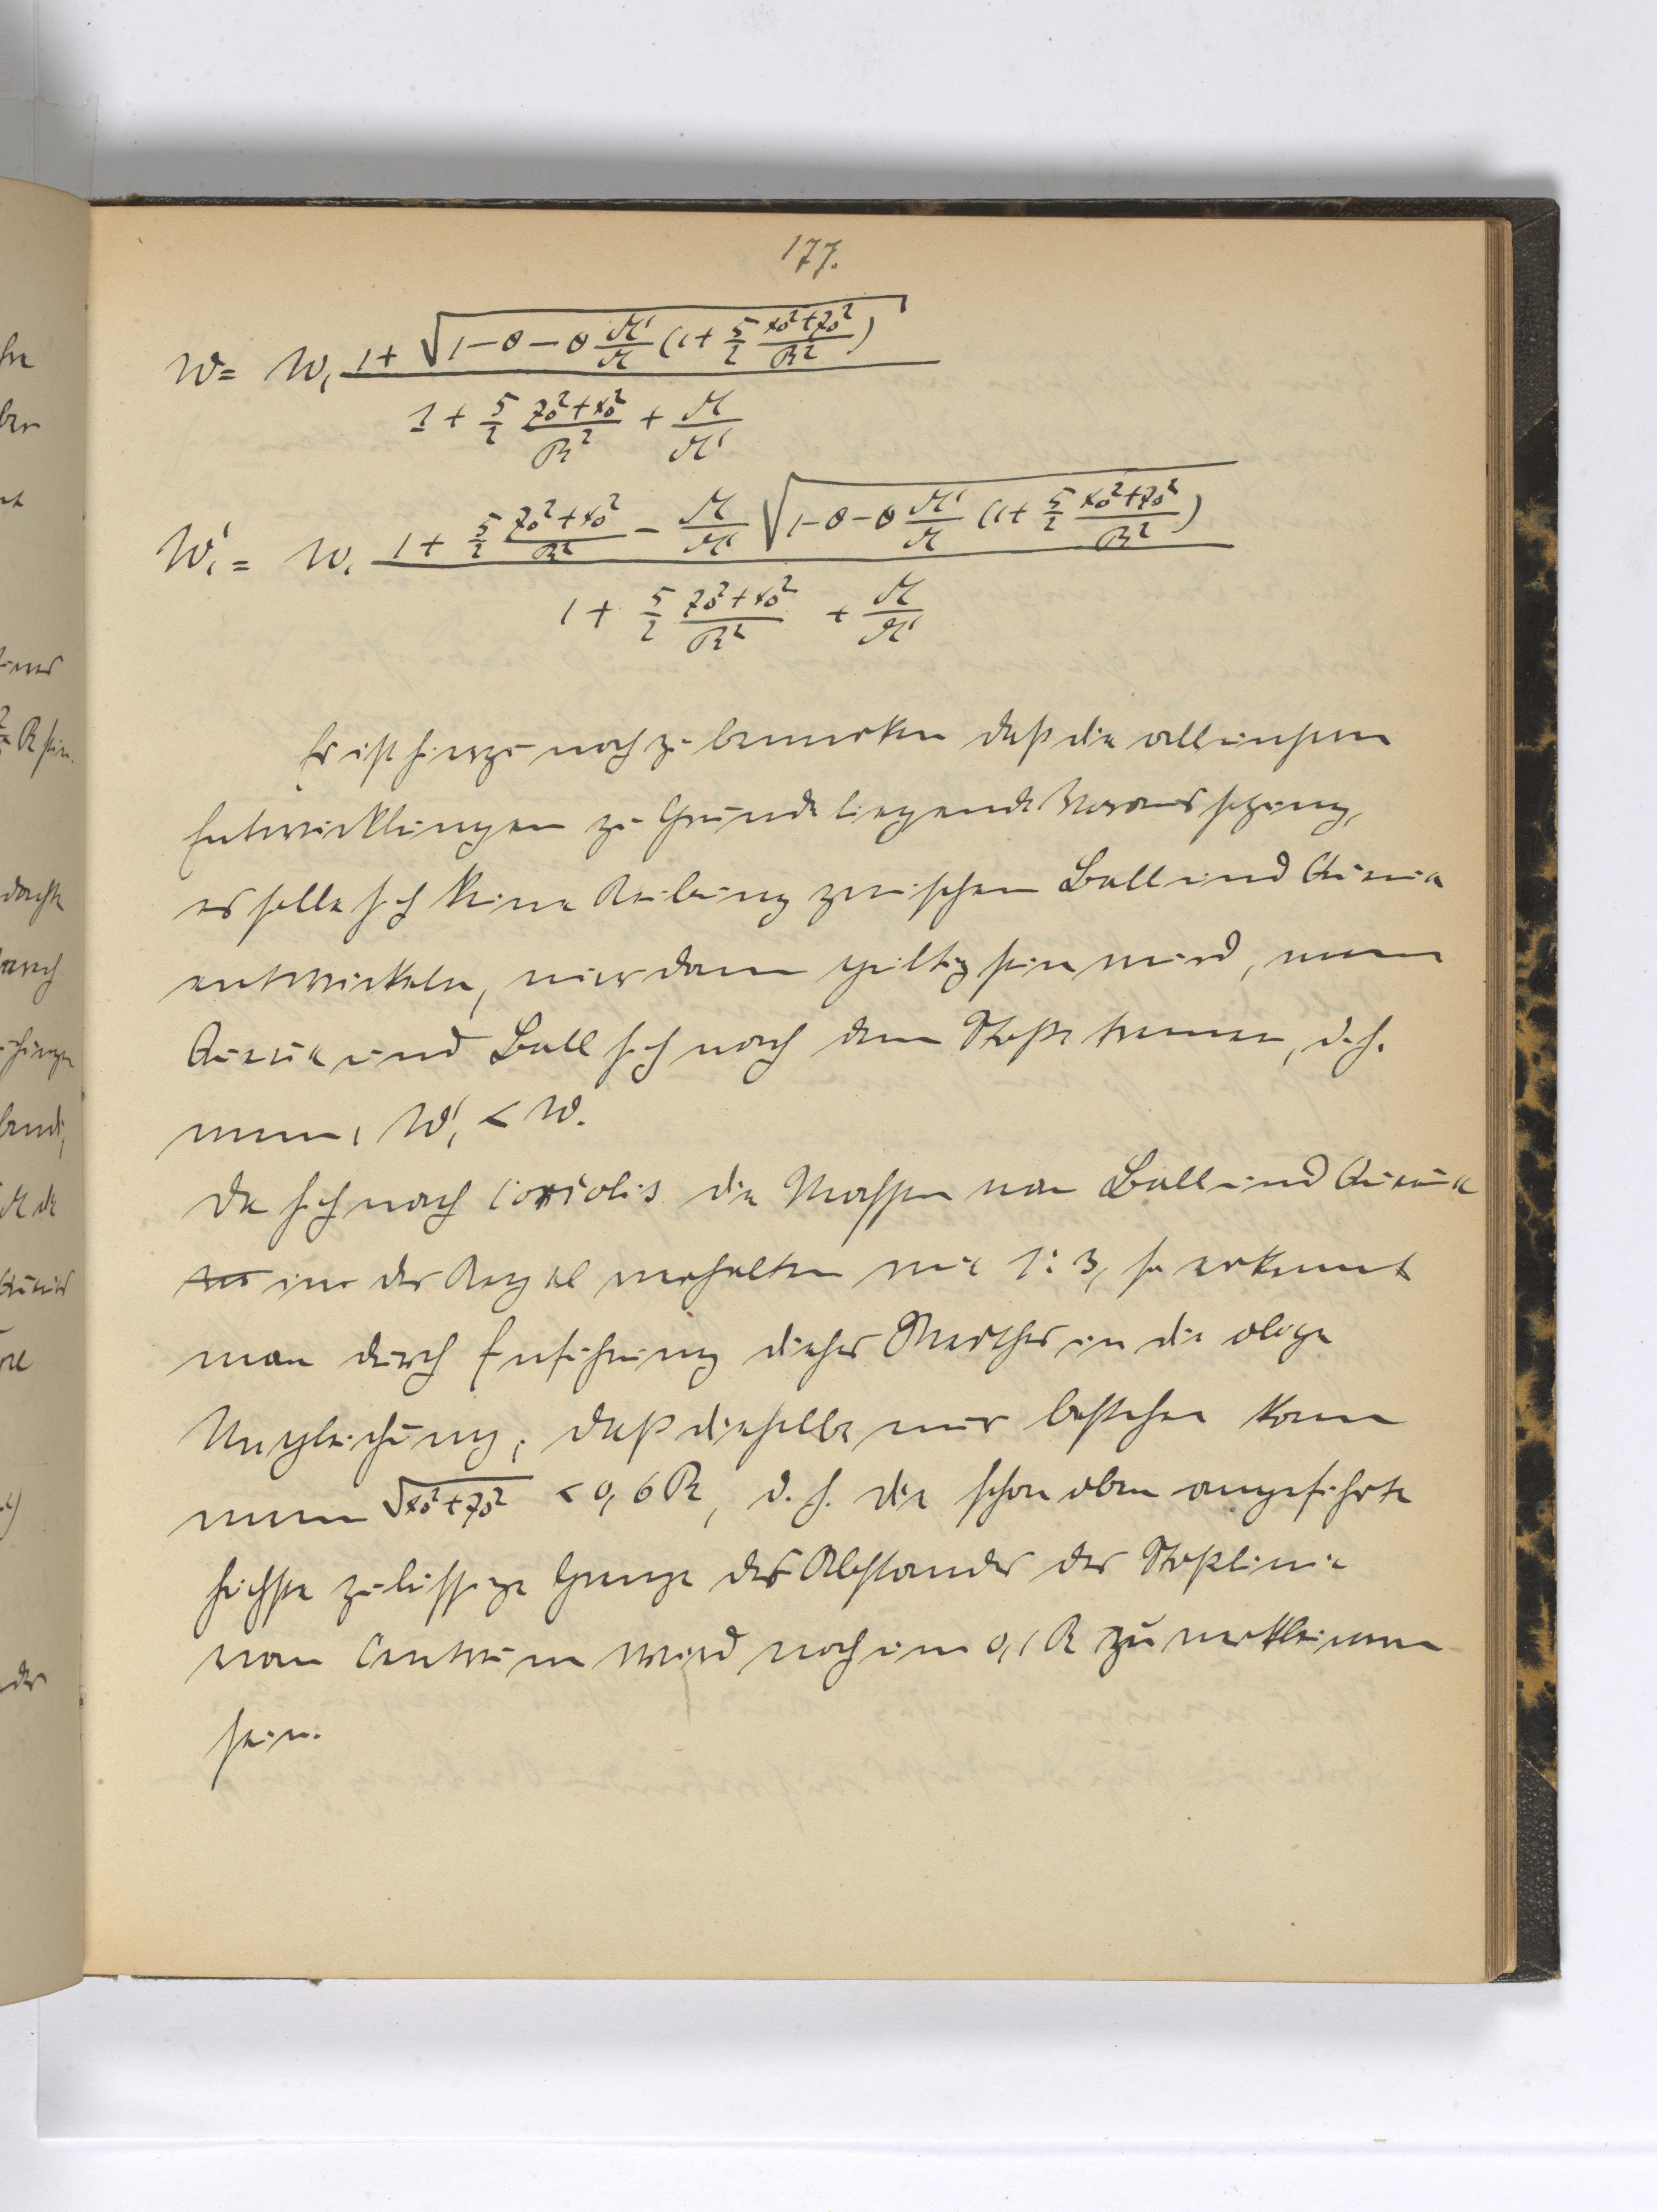 177.
W = W₁ (1 + √(1 − θ − θ M'/M (1 + 5/2 (x₀² + z₀²)/R²))) / (1 + 5/2 (z₀² + x₀²)/R² + M/M')
W₁' = W₁ (1 + 5/2 (z₀² + x₀²)/R² − M/M' √(1 − θ − θ M'/M (1 + 5/2 (x₀² + z₀²)/R²))) / (1 + 5/2 (z₀² + x₀²)/R² + M/M')
Es ist hierzu noch zu bemerken daß die all
Entwicklungen zu Grunde liegende Voraussetzung,
es solle sich keine Reibung zwischen Ball und Queue
entwickeln, nur dann giltig sein wird, wenn
Queue und Ball sich nach dem Stoße trennen, d. h.
wenn, W₁' < W.
Da sich nach Coriolis die Massen von Ball und Queue
in der Regel verhalten wie 1:3, so erkennt
man durch Einführung dieses Werthes in die obige
Ungleichung, daß dieselbe nur bestehen kann
wenn √x₀² + z₀² < 0,6 R, d. h. die schon oben angeführte
höchste zulässige Grenze des Abstandes der Stoßlinie
vom Centrum wird noch um 0,1 R zu verkleinern
sein.